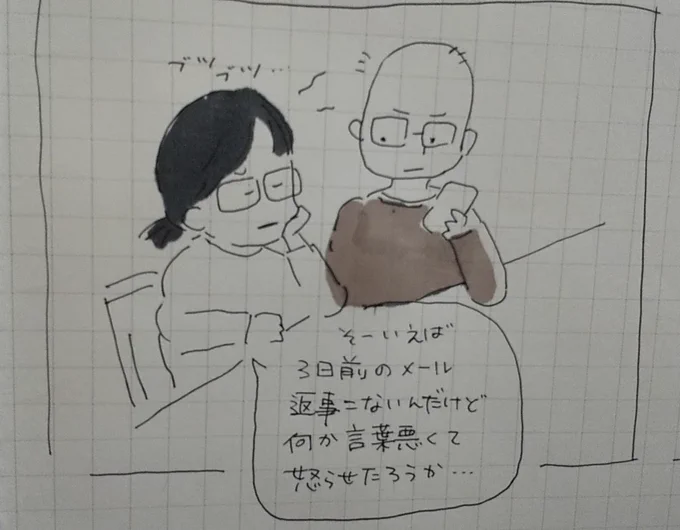 ブツッ ブツッ…
そーいえば
3日前のメール
返事こないんだけど
何か言葉悪くて
怒らせたろうか…